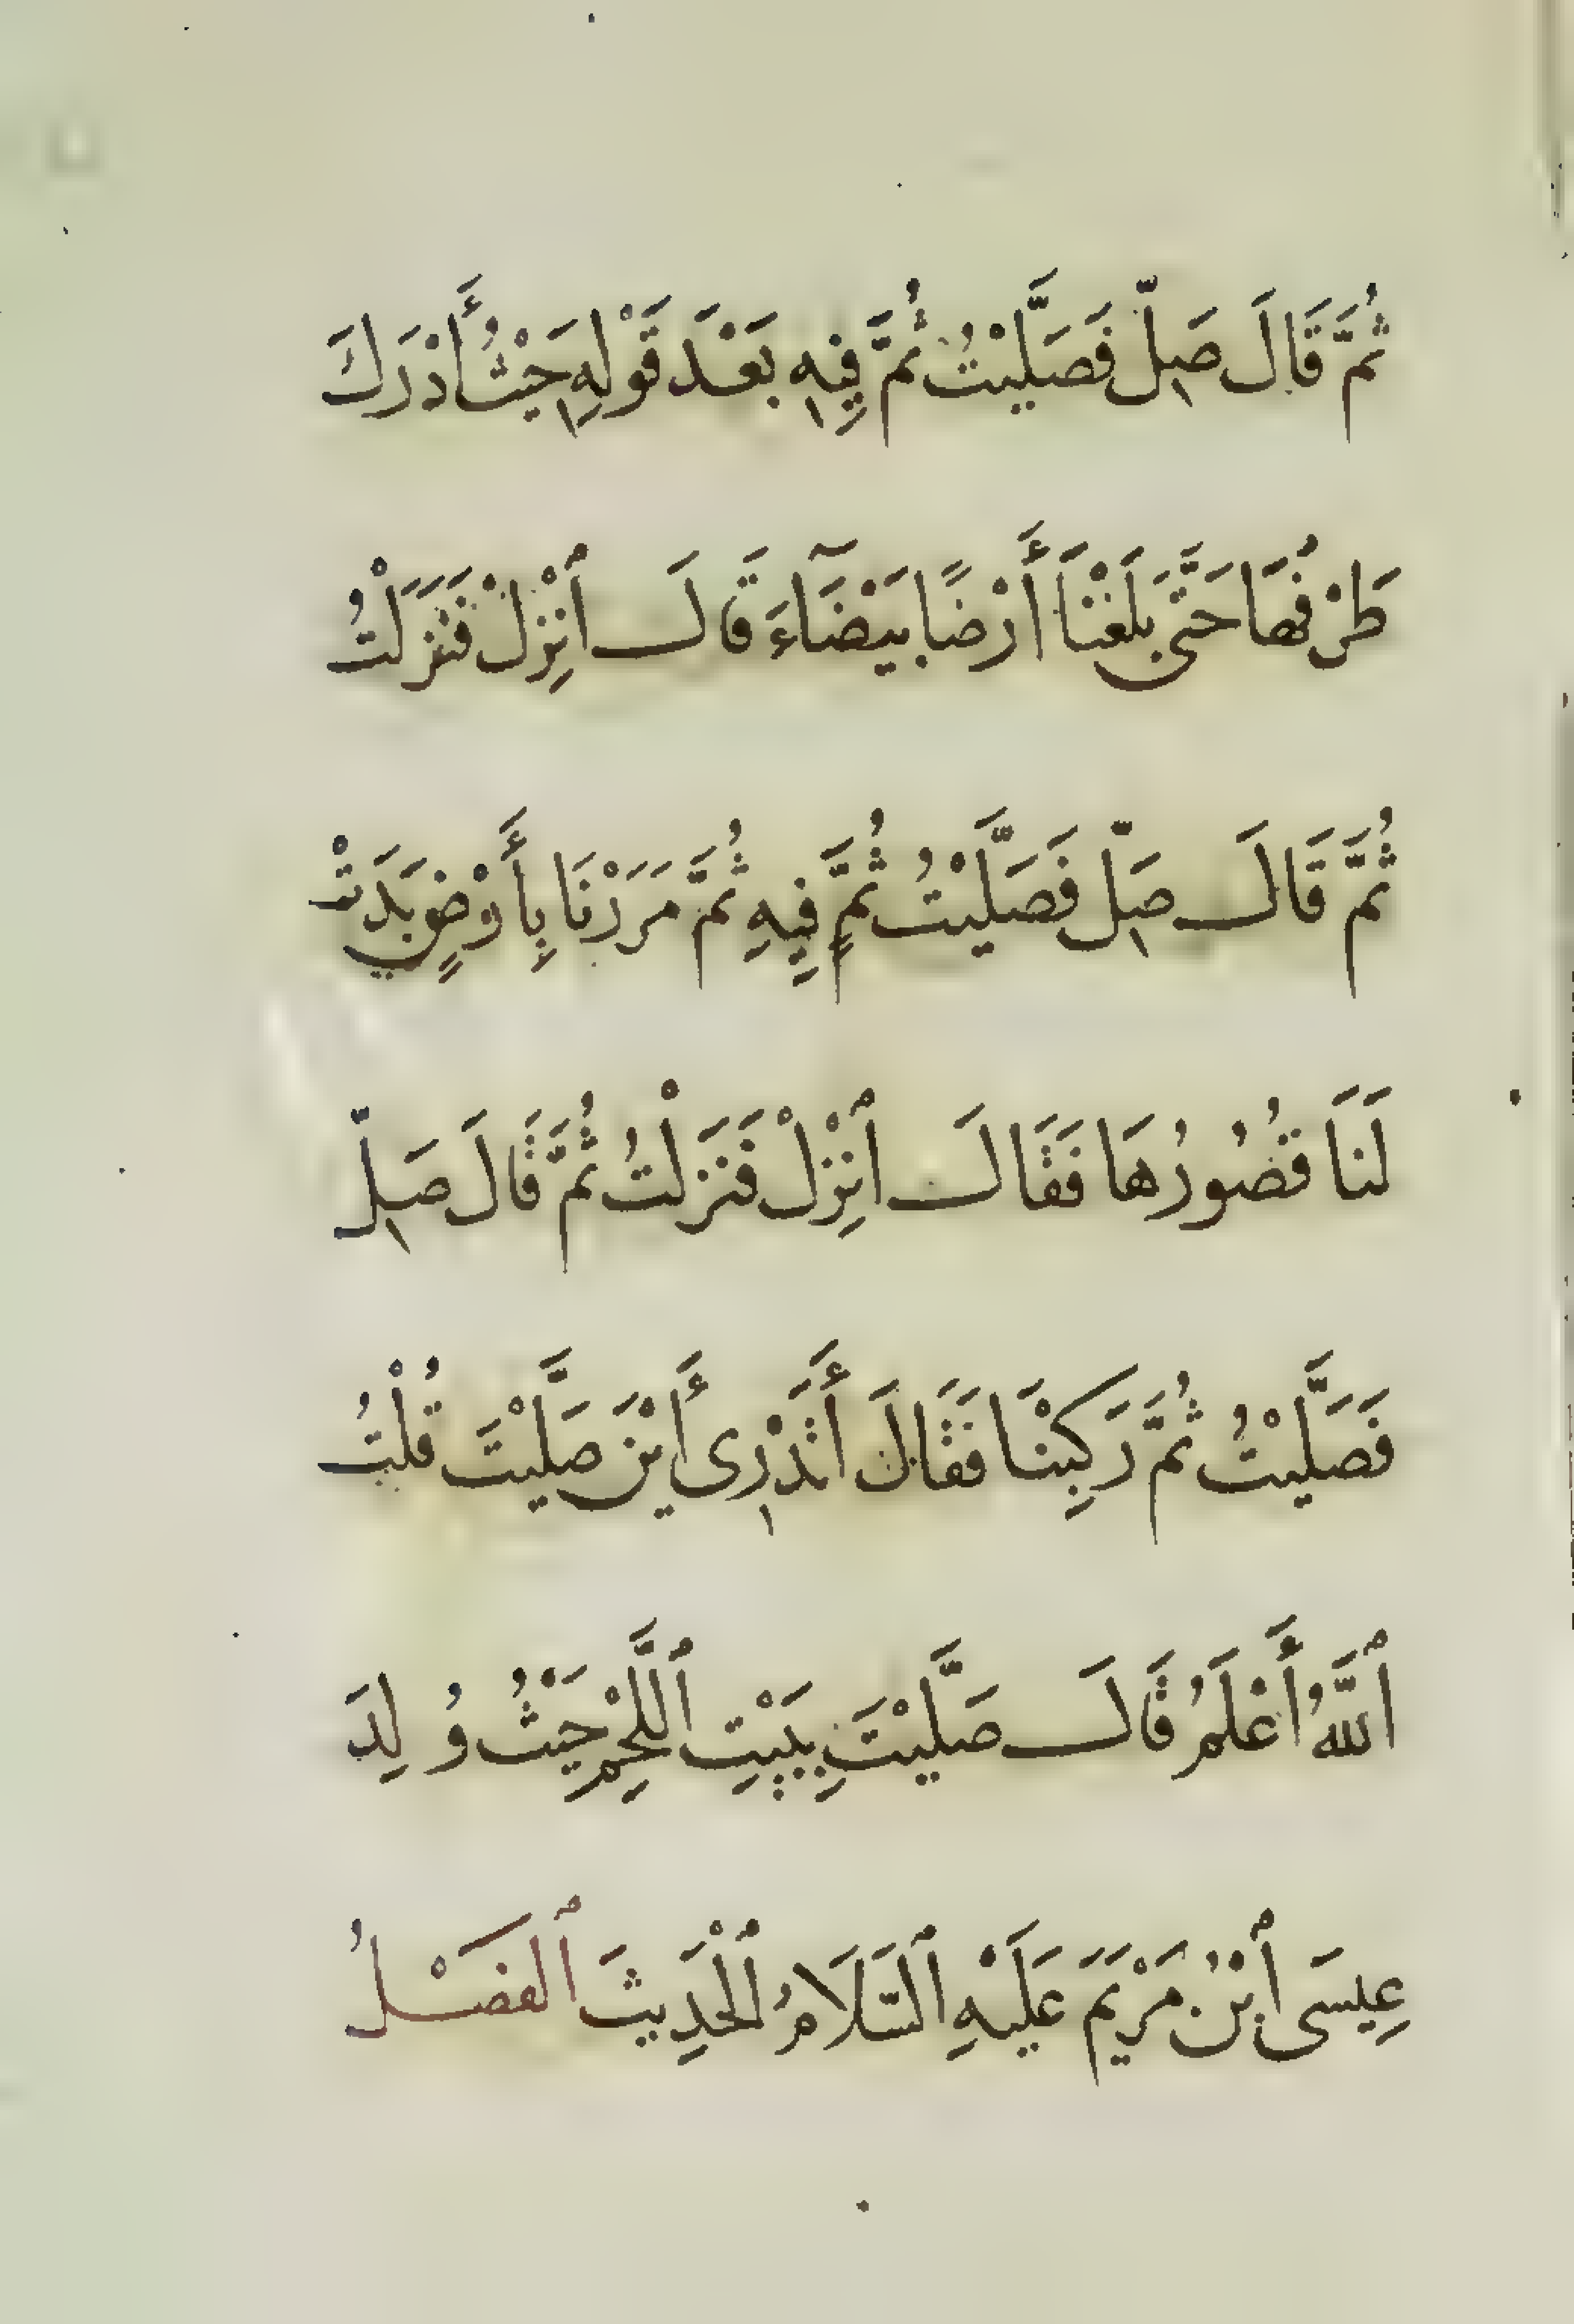 ثُمَّ قَالَ صَلِّ فَصَلَّيْتُ ثُمَّ فِيهِ بَعْدَ قَوْلِهِ حَيْثُ أَدْرَكَ
طَرْفُهَا حَتَّى بَلَغْنَا أَرْضًا بَيْضَآءَ قَالَ ٱنْزِلْ فَنَزَلْتُ
ثُمَّ قَالَ صَلِّ فَصَلَّيْتُ ثُمَّ فِيهِ ثُمَّ مَرَرْنَا بِأَرْضٍ بَدَتْ
لَنَا قُصُورُهَا فَقَالَ ٱنْزِلْ فَنَزَلْتُ ثُمَّ قَالَ صَلِّ
فَصَلَّيْتُ ثُمَّ رَكِبْنَا فَقَالَ أَتَدْرِى أَيْنَ صَلَّيْتَ قُلْتُ
ٱللَّهُ أَعْلَمُ قَالَ صَلَّيْتَ بِبَيْتِ ٱللَّحْمِ حَيْثُ وُلِدَ
عِيسَى ٱبْنُ مَرْيَمَ عَلَيْهِ ٱلسَّلَامُ ٱلْحَدِيثَ ٱلفَصْلُ